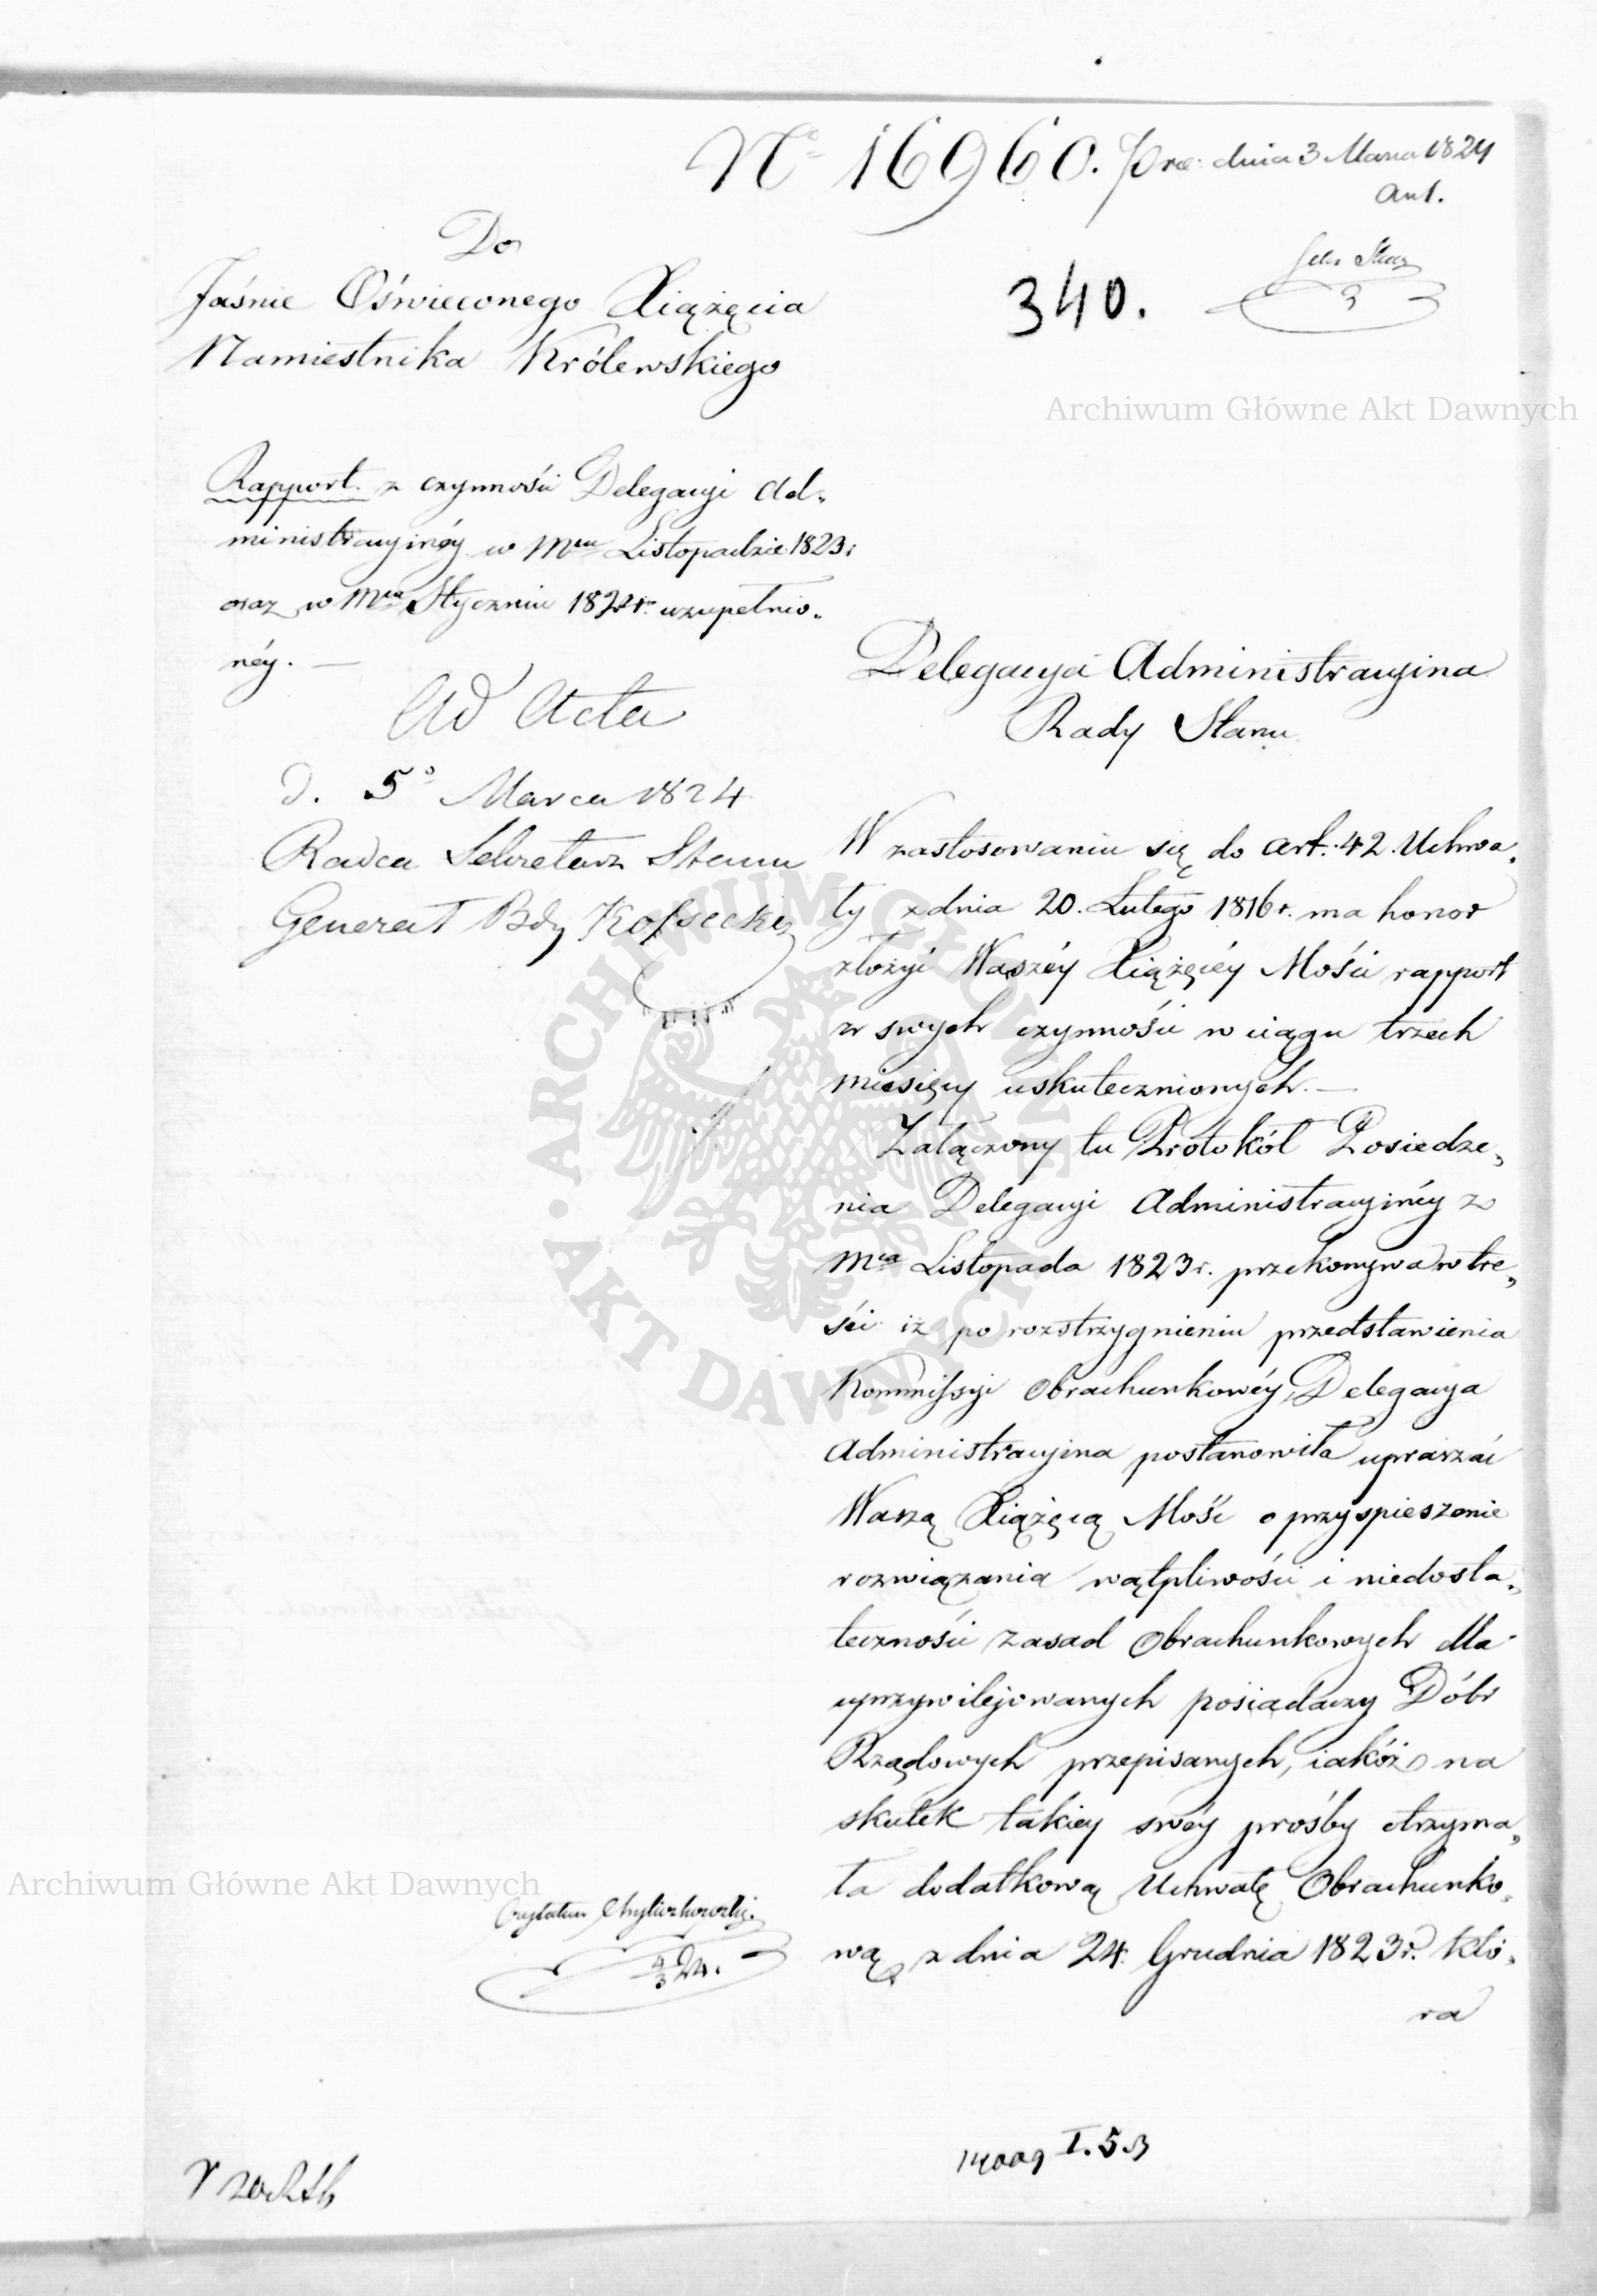 No 16960. Prae. dnia 3 Marca 1824
Ant.
Do
Jaśnie Oświeconego Xiążęcia
Namiestnika Królewskiego
340.
Archiwum Główne Akt Dawnych
Rapport z czynności Delegacyi Ad„
ministracyinéy w Mcu Listopadzie 1823:
oraz w Mcu Styczniu 1824r. uzupełnio„
néy. —
Ad Acta
d. 5o Marca 1824
Radca Sekretarz Stanu
Generał Bdy Kossecki
Delegacya Administracyina
Rady Stanu
W zastosowaniu się do art: 42. Uchwa„
ły z dnia 20. Lutego 1816r. ma honor
złożyć Waszéy Xiążęcéy Mości rapport
z swych czynności w ciągu trzech
miesięcy uskutecznionych. —
Załączony tu Protokół Posiedze„
nia Delegacyi Administracyinéy z
Mca Listopada 1823r. przekonywa w tre„
ści iż po rozstrzygnieniu przedstawienia
Kommissyi Obrachunkowéy, Delegacya
Administracyina postanowiła upraszać
Waszą Xiążęcą Mość o przyspieszenie
rozwiązania wątpliwości i niedosta„
teczności zasad Obrachunkowych dla
uprzywilejowanych posiadaczy Dóbr
Rządowych przepisanych, iakóż na
skutek takiey swéy prośby otrzyma„
ła dodatkową Uchwałę Obrachunko„
wą z dnia 24. Grudnia 1823r. któ„
ra
Archiwum Główne Akt Dawnych
ARCHIWUM GŁÓWNE AKT DAWNYCH
14009 I.5.B